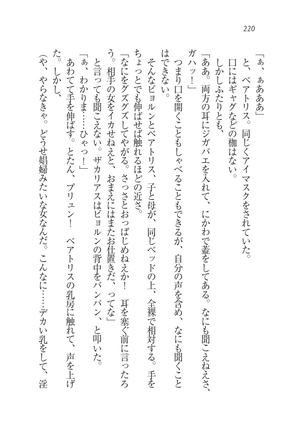 220
「ぁ、ぁあああ」
と、ベアトリス。同じくアイマスクをされていた。
口にはギャグなどの枷はない。
しかしふたりとも、
「ああ。両方の耳にジガバエを入れて、にかわで蓋をしてある。なにも聞こえねえさ、
ガハッ!」
つまり口を開くこともしゃべることもできるが、自分の声を含め、なにも聞くこと
はできない。
そんなビョルンとベアトリス、子と母が、同じベッドの上、全裸で相対する。手を
ちょっとでも伸ばせば触れるほどの近さ。
「なにをグズグズしてやがる。さっさとおっぱじめねえか! 耳を塞ぐ前に言ったろ
う。相手の女をイカせねえと、おまえにはまたお仕置きだ、ってな」
と言っても聞こえない。ザカリアスはビョルンの背中をバンバン、と叩いた。
「ぁ、わかりま……ひゃっ!」
あわてて手を伸ばす。とたん、ブリュン! ベアトリスの乳房に触れて、声を上げ
た。しかし、
(や、やらなきゃ。どうせ娼婦みたいな女なんだ。こんなに……デカい乳をして、淫